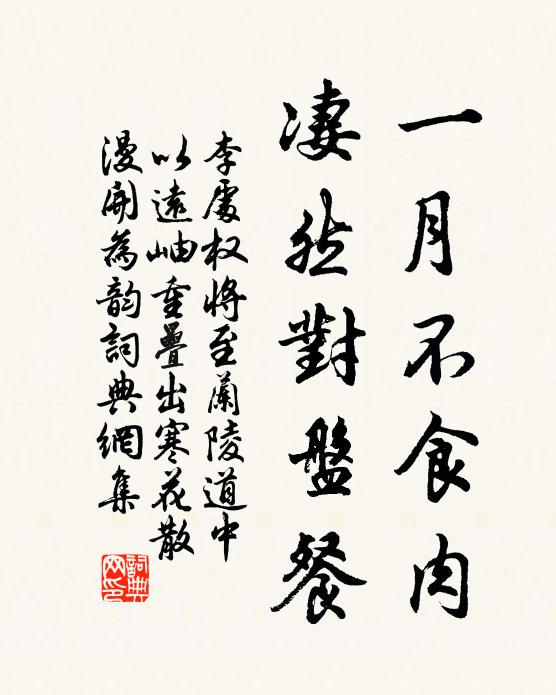 一月不食肉
凄然對盤餐
李處权將至蘭陵道中
以遠岫重疊出寒花散
漫開為韵詞典網集
詞典网印